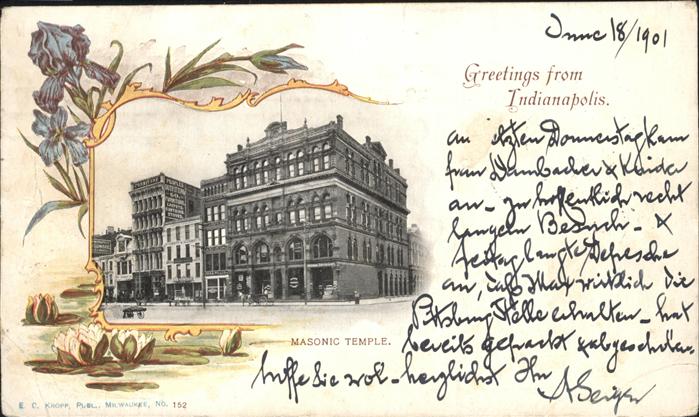 June 18/1901
Greetings from
Indianapolis.
an letzten Donnerstag kam
frau Dumbacher & Kinder
an – zu hoffentlich recht
langem Besuch – &
freitag langte Depesche
an, daß Max wirklich die
Pittsburg Stelle erhalten – hat
bereits gepackt &
hoffe Sie wol – herzlichst Ihr
MASONIC TEMPLE.
E. C. KROPP, PUBL., MILWAUKEE, NO. 152